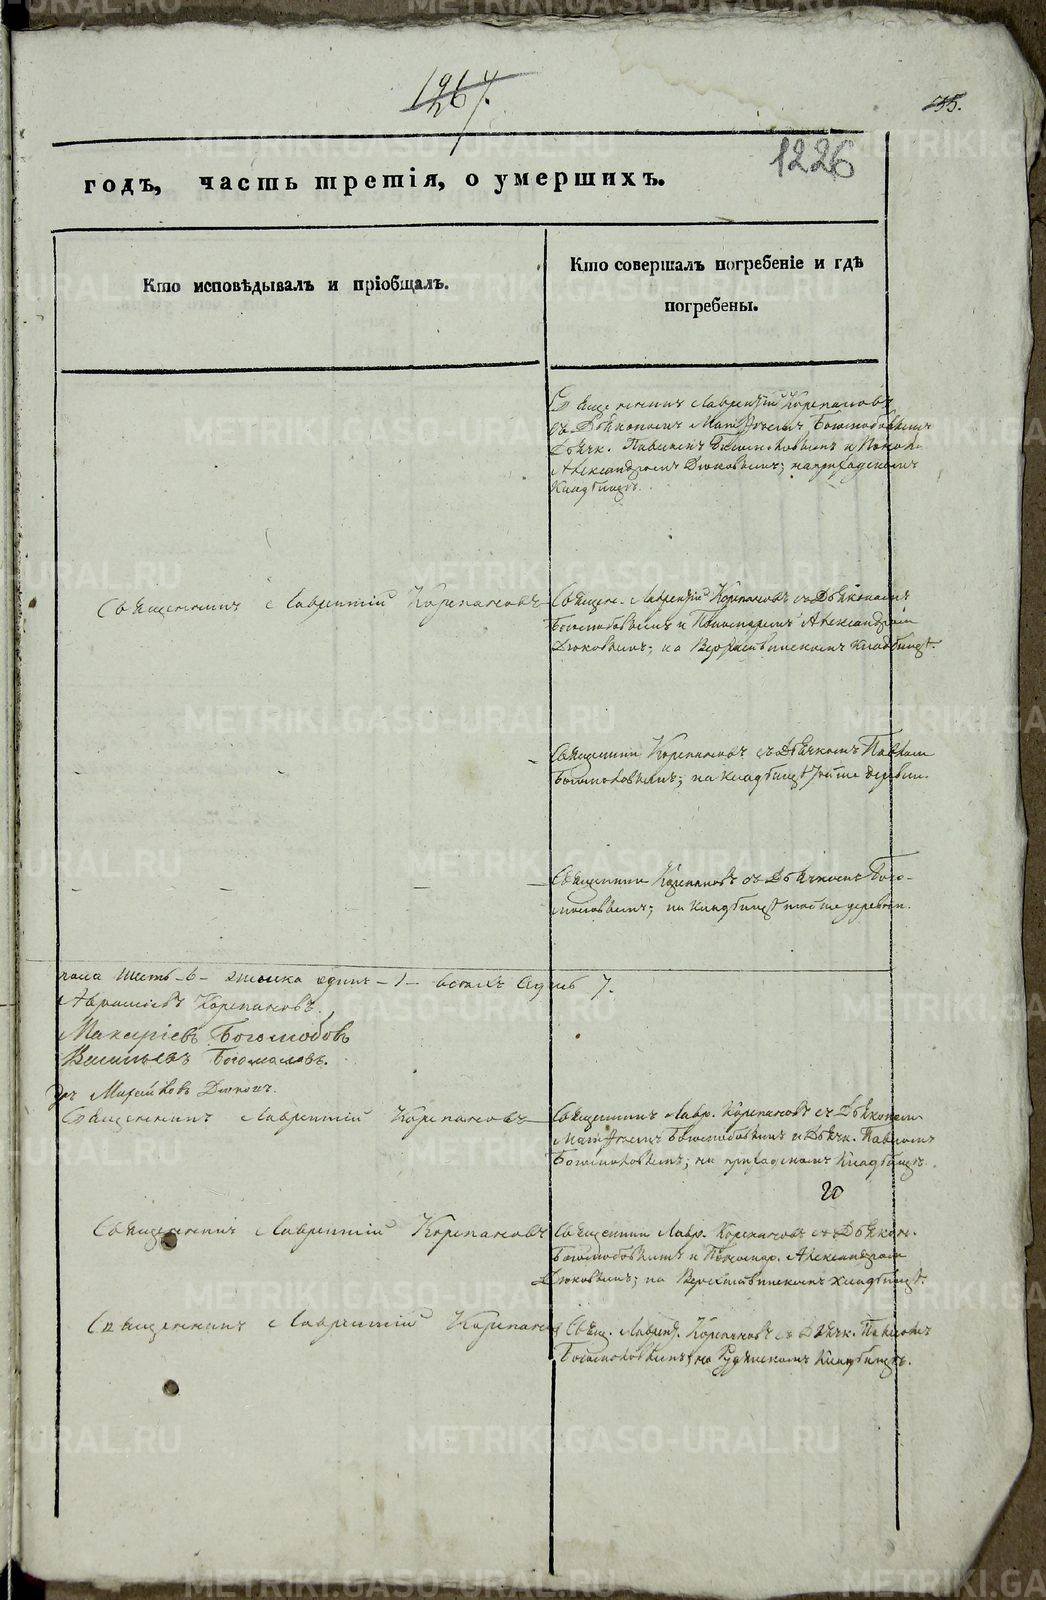 1264.
135.
1226
годъ, часть третія, о умершихъ.
Кто исповѣдывалъ и пріобщалъ.
Кто совершалъ погребеніе и гдѣ
погребены.
Священникъ Лаврентій Корепановъ
съ Діакономъ Матвѣемъ Боголюбовымъ
Дьячк. Павломъ Богомоловымъ и Поном.
Александромъ Дюковымъ; на приходскомъ
Кладбищѣ.
Священникъ Лаврентій Корепановъ
Священ. Лаврентій Корепановъ съ Діакономъ
Боголюбовымъ и Пономаремъ Александромъ
Дюковымъ; на кладбищѣ.
Священникъ Корепановъ съ Дьячкомъ Павломъ
Богомоловымъ; на кладбищѣ той же деревни.
Священникъ Корепановъ съ Дьячкомъ Бого-
моловымъ; на кладбищѣ той же деревни.
пола шесть - 6 - женска одинъ - 1 - всего седмь 7.
Корепановъ.
Макаріевъ Боголюбовъ
Васильевъ Богомоловъ.
Дюковъ.
Священникъ Лаврентій Корепановъ
Священникъ Лавр. Корепановъ съ Діакономъ
Матвѣемъ Боголюбовымъ и Дьячк. Павломъ
Богомоловымъ; на приходскомъ Кладбищѣ.
20
Священникъ Лаврентій Корепановъ
Священникъ Лавр. Корепановъ съ Діакон.
Боголюбовымъ и Пономар. Александромъ
Дюковымъ; на кладбищѣ.
Священникъ Лаврентій Корепановъ
Свящ. Лаврент. Корепановъ съ Дьячк. Павломъ
Богомоловымъ; на кладбищѣ.
METRIKI.GASO-URAL.RU